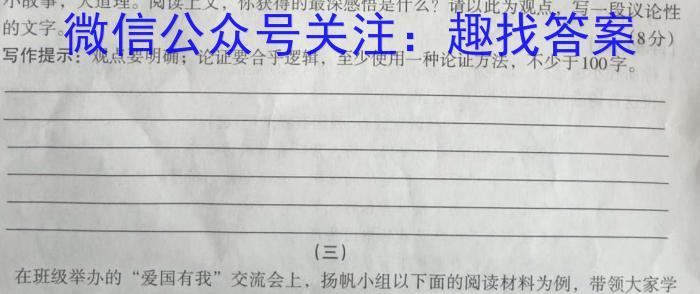 小故事，大道理。阅读上文，你获得的最深感悟是什么？请以此为观点，写一段议论性
的文字。（8分）
微信公众号关注：趣找答案
写作提示：观点要明确；论证要合乎逻辑，至少使用一种论证方法，不少于100字。
（三）
在班级举办的“爱国有我”交流会上，扬帆小组以下面的阅读材料为例，带领大家学